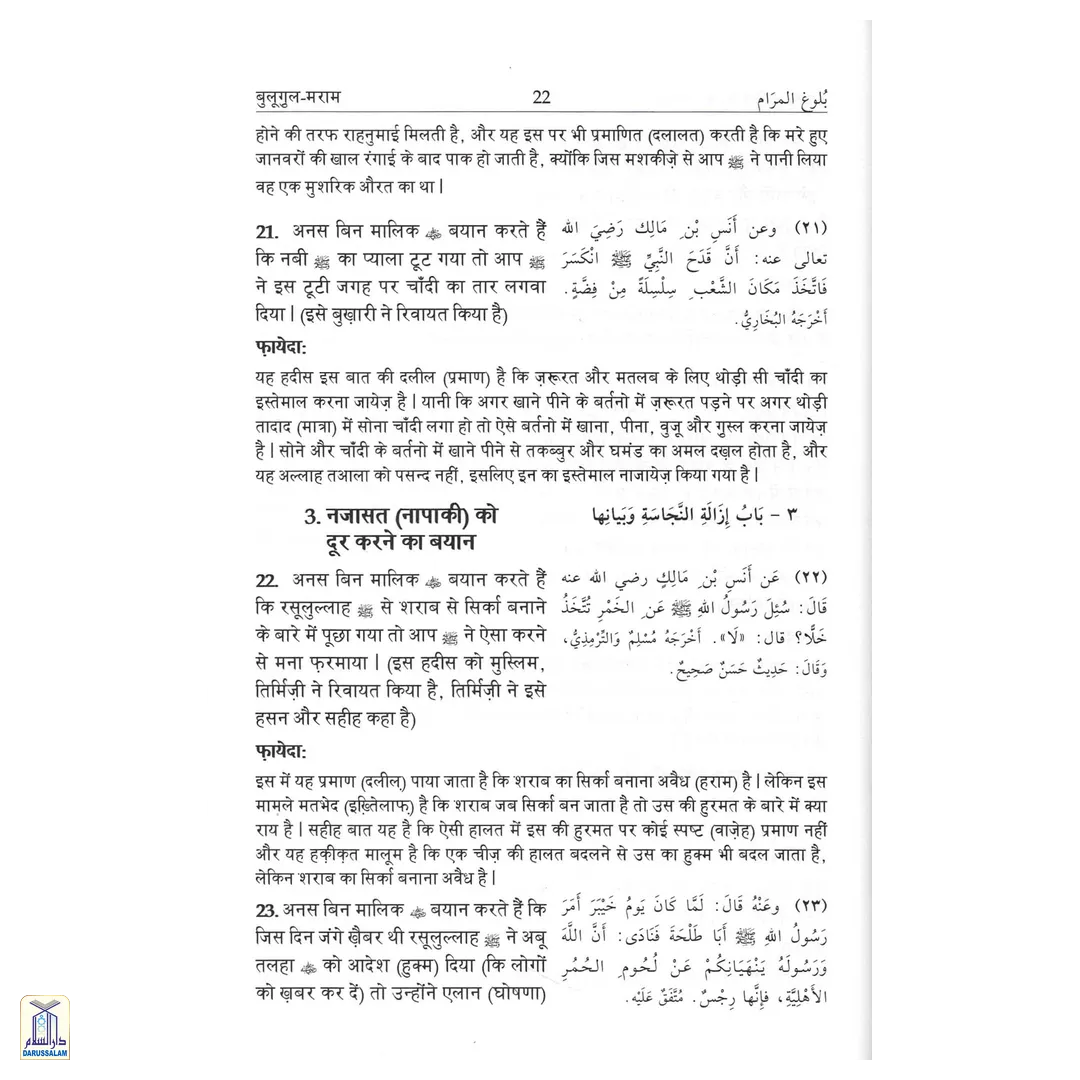 बुलूगुल-मराम 22 بُلوغ المرَام
होने की तरफ राहनुमाई मिलती है, और यह इस पर भी प्रमाणित (दलालत) करती है कि मरे हुए
जानवरों की खाल रंगाई के बाद पाक हो जाती है, क्योंकि जिस मशकीज़े से आप ﷺ ने पानी लिया
वह एक मुशरिक औरत का था |
21. अनस बिन मालिक बयान करते हैं
कि नबी ﷺ का प्याला टूट गया तो आप ﷺ
ने इस टूटी जगह पर चाँदी का तार लगवा
दिया | (इसे बुख़ारी ने रिवायत किया है)
(٢١) وعن أَنَسِ بْنِ مَالِك رَضِيَ الله
تعالى عنه: أَنَّ قَدَحَ النَّبِيِّ ﷺ انْكَسَرَ
فَاتَّخَذَ مَكَانَ الشَّعْبِ سِلْسِلَةً مِنْ فِضَّةٍ.
أَخْرَجَهُ البُخَارِيُّ.
फ़ायेदा:
यह हदीस इस बात की दलील (प्रमाण) है कि ज़रूरत और मतलब के लिए थोड़ी सी चाँदी का
इस्तेमाल करना जायेज़ है | यानी कि अगर खाने पीने के बर्तनो में ज़रूरत पड़ने पर अगर थोड़ी
तादाद (मात्रा) में सोना चाँदी लगा हो तो ऐसे बर्तनो में खाना, पीना, वुजू और गुस्ल करना जायेज़
है | सोने और चाँदी के बर्तनो में खाने पीने से तकब्बुर और घमंड का अमल दख़ल होता है, और
यह अल्लाह तआला को पसन्द नहीं, इसलिए इन का इस्तेमाल नाजायेज़ किया गया है |
3. नजासत (नापाकी) को
दूर करने का बयान
٣ - بَابُ إِزَالَةِ النَّجَاسَةِ وَبَيانِها
22. अनस बिन मालिक बयान करते हैं
कि रसूलुल्लाह ﷺ से शराब से सिर्का बनाने
के बारे में पूछा गया तो आप ﷺ ने ऐसा करने
से मना फ़रमाया | (इस हदीस को मुस्लिम,
तिर्मिज़ी ने रिवायत किया है, तिर्मिज़ी ने इसे
हसन और सहीह कहा है)
(٢٢) عَن أَنَسِ بْنِ مَالِكٍ رضي الله عنه
قَالَ: سُئِلَ رَسُولُ اللهِ ﷺ عَنِ الخَمْرِ تُتَّخَذُ
خَلًّا؟ قال: «لَا». أَخْرَجَهُ مُسْلِمٌ وَالتِّرْمِذِيُّ،
وَقَالَ: حَدِيثٌ حَسَنٌ صَحِيحٌ.
फ़ायेदा:
इस में यह प्रमाण (दलील) पाया जाता है कि शराब का सिर्का बनाना अवैध (हराम) है | लेकिन इस
मामले मतभेद (इख़्तिलाफ़) है कि शराब जब सिर्का बन जाता है तो उस की हुरमत के बारे में क्या
राय है | सहीह बात यह है कि ऐसी हालत में इस की हुरमत पर कोई स्पष्ट (वाज़ेह) प्रमाण नहीं
और यह हक़ीक़त मालूम है कि एक चीज़ की हालत बदलने से उस का हुक्म भी बदल जाता है,
लेकिन शराब का सिर्का बनाना अवैध है |
23. अनस बिन मालिक बयान करते हैं कि
जिस दिन जंगे ख़ैबर थी रसूलुल्लाह ﷺ ने अबू
तलहा को आदेश (हुक्म) दिया (कि लोगों
को ख़बर कर दें) तो उन्होंने एलान (घोषणा)
(٢٣) وعَنْهُ قَالَ: لَمَّا كَانَ يَومُ خَيْبَرَ أَمَرَ
رَسُولُ اللهِ ﷺ أَبَا طَلْحَةَ فَنَادَى: أَنَّ اللَّهَ
وَرَسُولَهُ يَنْهَيَانِكُمْ عَنْ لُحُومِ الحُمُرِ
الأَهْلِيَّةِ، فإِنَّها رِجْسٌ. مُتَّفَقٌ عَلَيْه.
دار السلام
DARUSSALAM